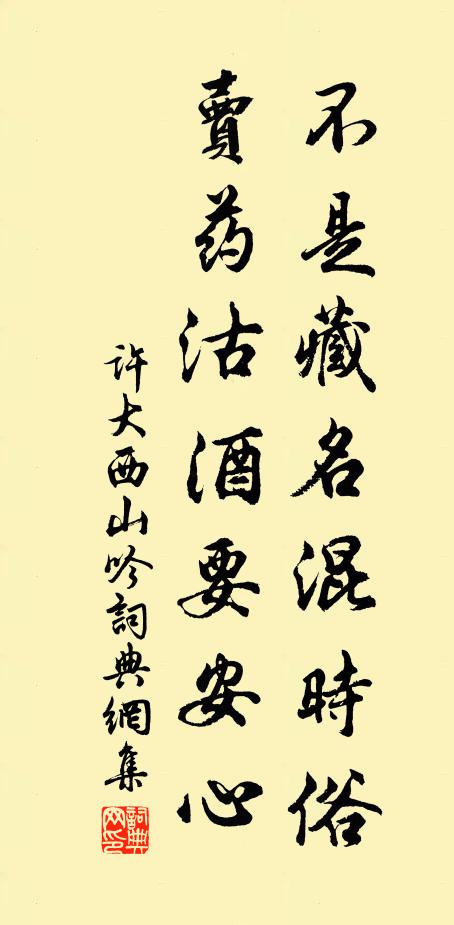 不是藏名混時俗
賣药沽酒要安心
许大西山吟詞典網集
詞典網印